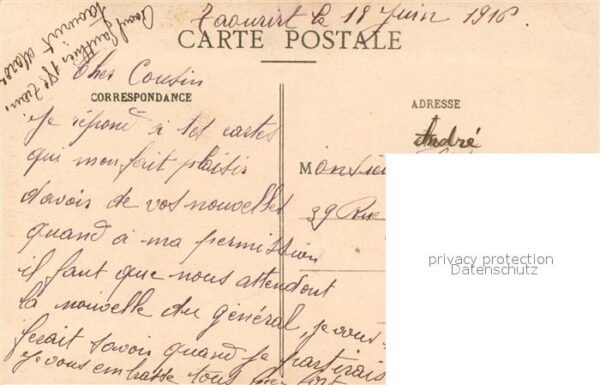 Taourirt le 18 Juin 1916
CARTE POSTALE
Cher Cousin
CORRESPONDANCE
Je répond à tes cartes
qui mon fait plaisir
d'avois de vos nouvelles
quand à ma permission
il faut que nous attendont
la nouvelle du général, je vous
ferait savoir quand je partirais
Je vous embrasse tous
ADRESSE
André
Monsie
39 Rue
privacy protection
Datenschutz
Taourirt Maroc